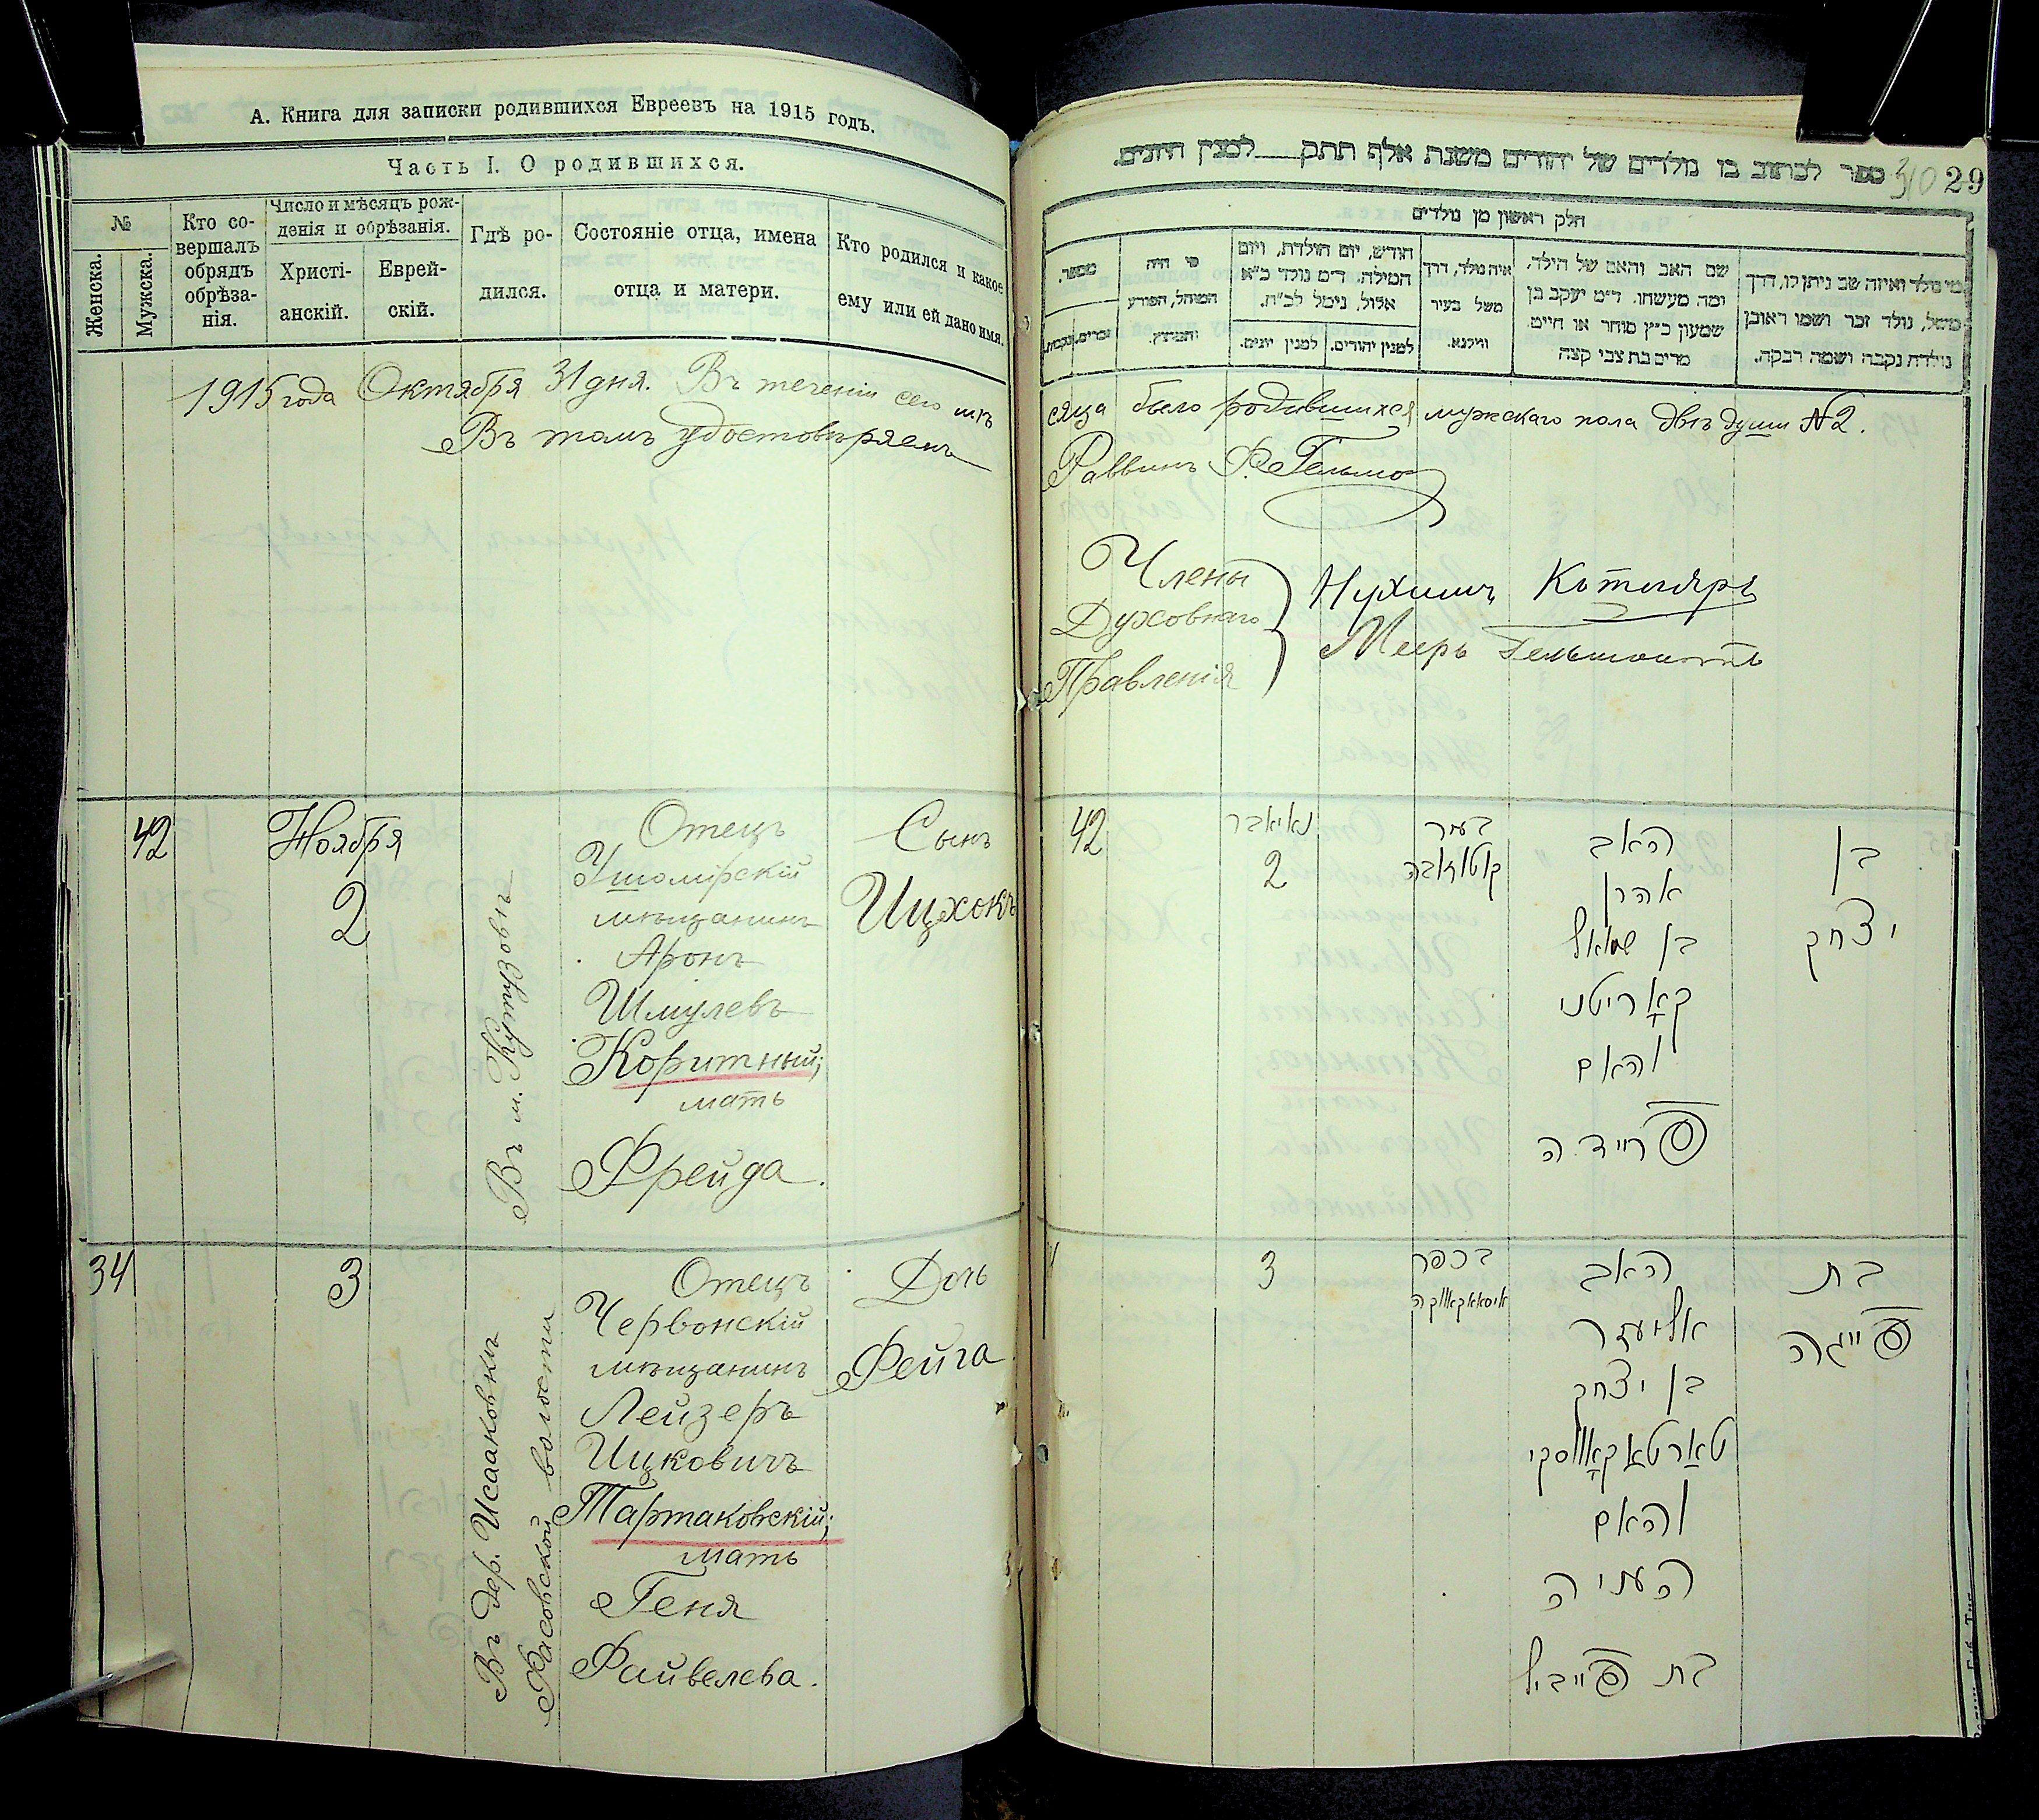 А. Книга для записки родившихся Евреевъ на 1915 годъ.
Часть I. О родившихся.
№
Женска.
Мужска.
Кто со-
вершалъ
обрядъ
обрѣза-
нія.
Число и мѣсяцъ рож-
денія и обрѣзанія.
Христі-
анскій.
Еврей-
скій.
Гдѣ ро-
дился.
Состояніе отца, имена
отца и матери.
Кто родился и какое
ему или ей дано имя.
1915 года Октября 31 дня. Въ теченіи сего мѣ
Въ томъ удостовѣряемъ
42
Ноября
2
Въ м. Кутузовѣ
Отецъ
Ушомірскій
мѣщанинъ
Аронъ
Шмулевъ
Коритный;
мать
Фрейда.
Сынъ
Ицхокъ
34
3
Въ дер. Исааковкѣ
Фасовской волости
Отецъ
Червонскій
мѣщанинъ
Лейзеръ
Ицковичъ
Тартаковскій;
мать
Геня
Файвелева.
Дочь
Фейга
ספר לכתוב בו נולדים של יהודים משנת אלף תתק למנין היונים.
310 29
חלק ראשון מן נולדים
מספר.
זכרים.
נקבות.
מי היה
המוהל, הפורע
והמוצץ.
חודש, יום הולדת, ויום
המילה. ד״מ נולד כ״א
אלול, נימל לכ״ח.
למנין יונים.
למנין יהודים.
איה נולד, דרך
משל בעיר
ווילנא.
שם האב והאם של הילד,
ומה מעשהו. ד״מ יעקב בן
שמעון כ״ץ סוחר או חייט.
מרים בת צבי קצה
מי נולד ואיזה שם ניתן לו, דרך
משל, נולד זכר ושמו ראובן
נולדת נקבה ושמה רבקה.
сяца было родившихся мужскаго пола двѣ души №2.
Раввинъ
Члены
Духовнаго
Правленія
Нухимъ Котляръ
Мееръ
42
נאיאבר
2
בעיר
קוטוזובה
האב
אהרן
בן שמואל
קאָריטני
והאם
פריידה
בן
יצחק
3
בכפר
איסאאקאווקה
האב
אליעזר
בן יצחק
טאַרטאַקאָווסקי
והאם
העניה
בת פייביל
בת
פייגה